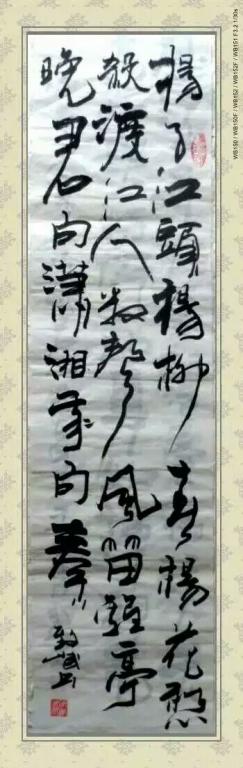 揚子江頭楊柳春楊花愁
殺渡江人数声風笛離亭
晚君向瀟湘我向秦
WB150 / WB150F / WB152 / WB152F / WB151 F3.2 1/30s